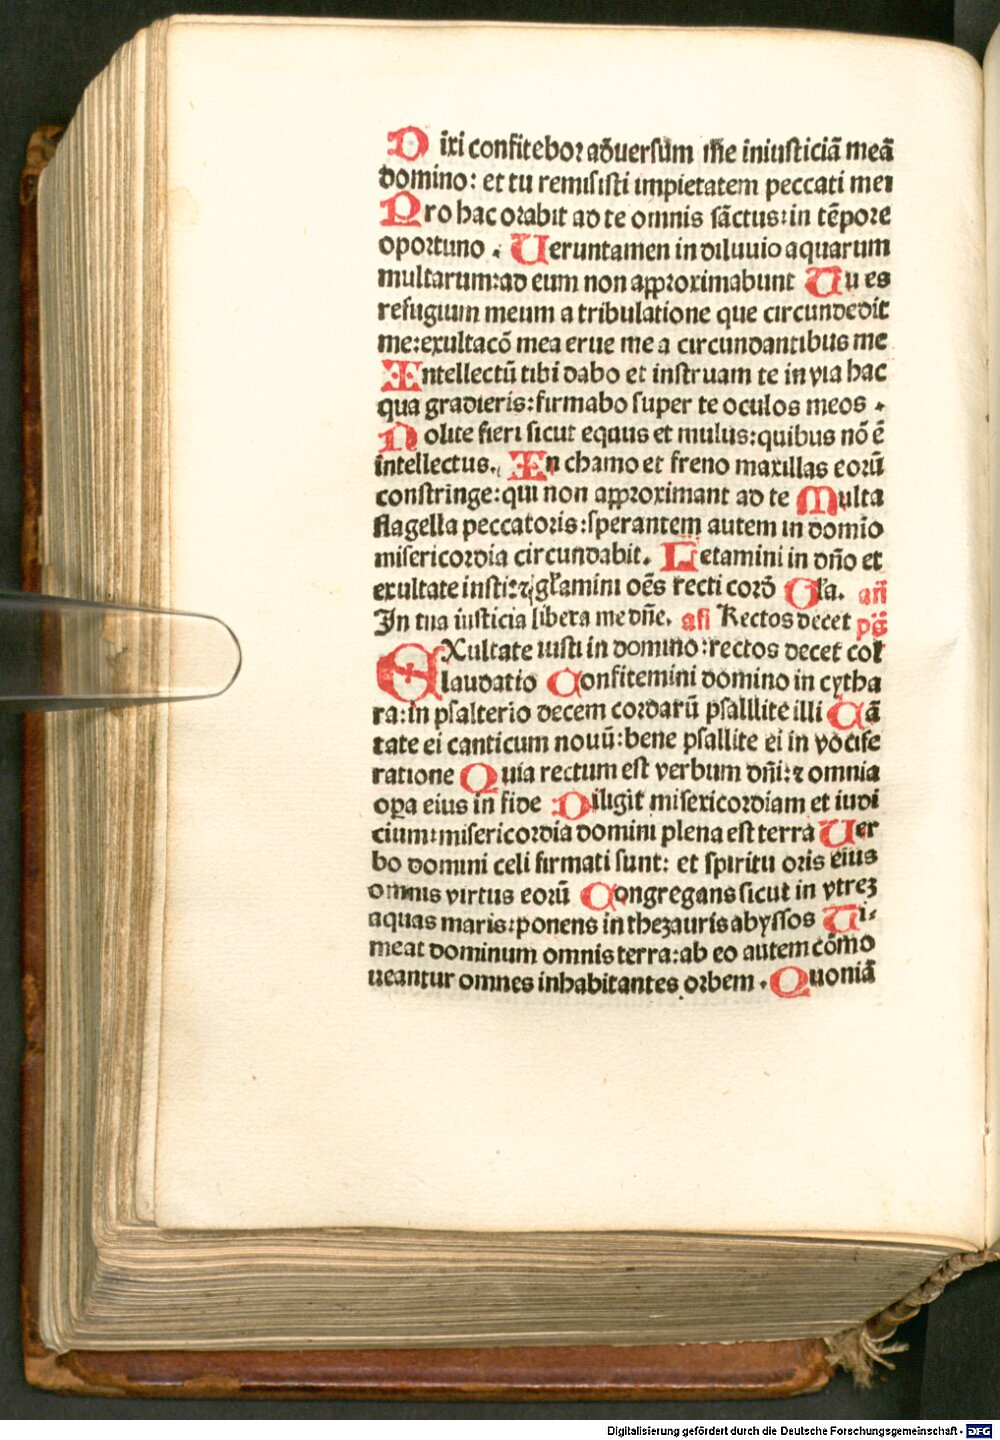 Dixi confitebor aduersum me iniusticiā meā
domino: et tu remisisti impietatem peccati mei
Pro hac orabit ad te omnis sāctus: in tēpore
oportuno . Ueruntamen in diluuio aquarum
multarum: ad eum non approximabunt Tu es
refugium meum a tribulatione que circundedit
me: exultacō mea erue me a circundantibus me
Intellectū tibi dabo et instruam te in via hac
qua gradieris: firmabo super te oculos meos .
Nolite fieri sicut equus et mulus: quibus nō ē
intellectus. In chamo et freno maxillas eorū
constringe: qui non approximant ad te Multa
flagella peccatoris: sperantem autem in domio
misericordia circundabit. Letamini in dño et
exultate iusti: ⁊ głamini oēs recti cord Gła. añ
In tua iusticia libera me dñe. añ Rectos decet ps̄
EXultate iusti in domino: rectos decet col
laudatio Confitemini domino in cytha
ra: in psalterio decem cordarū psalllite illi Cā
tate ei canticum nouū: bene psallite ei in vocife
ratione Quia rectum est verbum dñi: ⁊ omnia
opa eius in fide Diligit misericordiam et iudi
cium: misericordia domini plena est terra Uer
bo domini celi firmati sunt: et spiritu oris eius
omnis virtus eorū Congregans sicut in vtreʒ
aquas maris: ponens in thezauris abyssos Ti-
meat dominum omnis terra: ab eo autem cōmo
ueantur omnes inhabitantes orbem . Quoniā
Digitalisierung gefördert durch die Deutsche Forschungsgemeinschaft - DFG